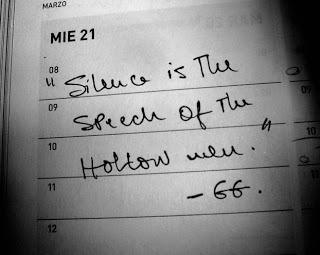 MARZO
MIE 21
08
" Silence is The
09
Speech Of The
10
Hollow men."
11
- GG.
12
09
10
11